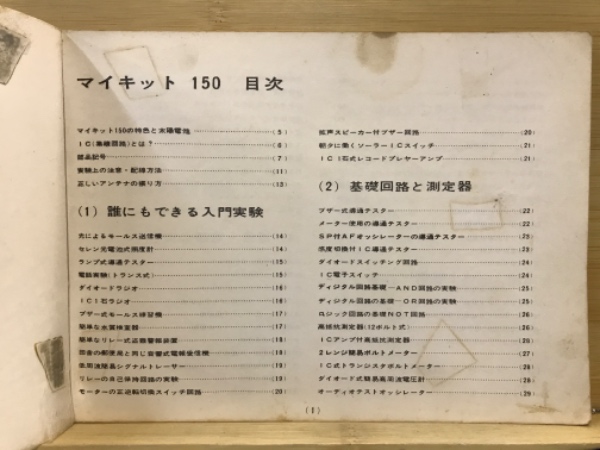 マイキット 150 目次
マイキット150の特色と太陽電池 (5)
IC(集積回路)とは? (6)
部品記号 (7)
実験上の注意・配線方法 (11)
正しいアンテナの張り方 (13)
(1) 誰にもできる入門実験
光によるモールス送信機 (14)
セレン光電池式照度計 (14)
ランプ式導通テスター (15)
電磁実験(トランス式) (15)
ダイオードラジオ (16)
IC1石ラジオ (16)
ブザー式モールス練習機 (17)
簡単な水質検査器 (17)
簡単なリレー式盗難警報装置 (18)
田舎の郵便局と同じ音響式電信受信機 (18)
低周波簡易シグナルトレーサー (19)
リレーの自己保持回路の実験 (19)
モーターの正逆転切換スイッチ回路 (20)
拡声スピーカー付ブザー回路 (20)
朝夕に働くソーラーICスイッチ (21)
IC1石式レコードプレヤーアンプ (21)
(2) 基礎回路と測定器
ブザー式導通テスター (22)
メーター使用の導通テスター (22)
SP付AFオッシレーターの導通テスター (23)
感度切換付IC導通テスター (23)
ダイオードスイッチング回路 (24)
IC電子スイッチ (24)
ディジタル回路基礎―AND回路の実験 (25)
ディジタル回路の基礎―OR回路の実験 (25)
ロジック回路の基礎NOT回路 (26)
高抵抗測定器(12ボルト式) (26)
ICアンプ付高抵抗測定器
2レンジ簡易ボルトメーター (27)
IC式トランジスタボルトメーター
ダイオード式簡易高周波電圧計 (28)
オーディオテストオッシレーター (29)
(1)